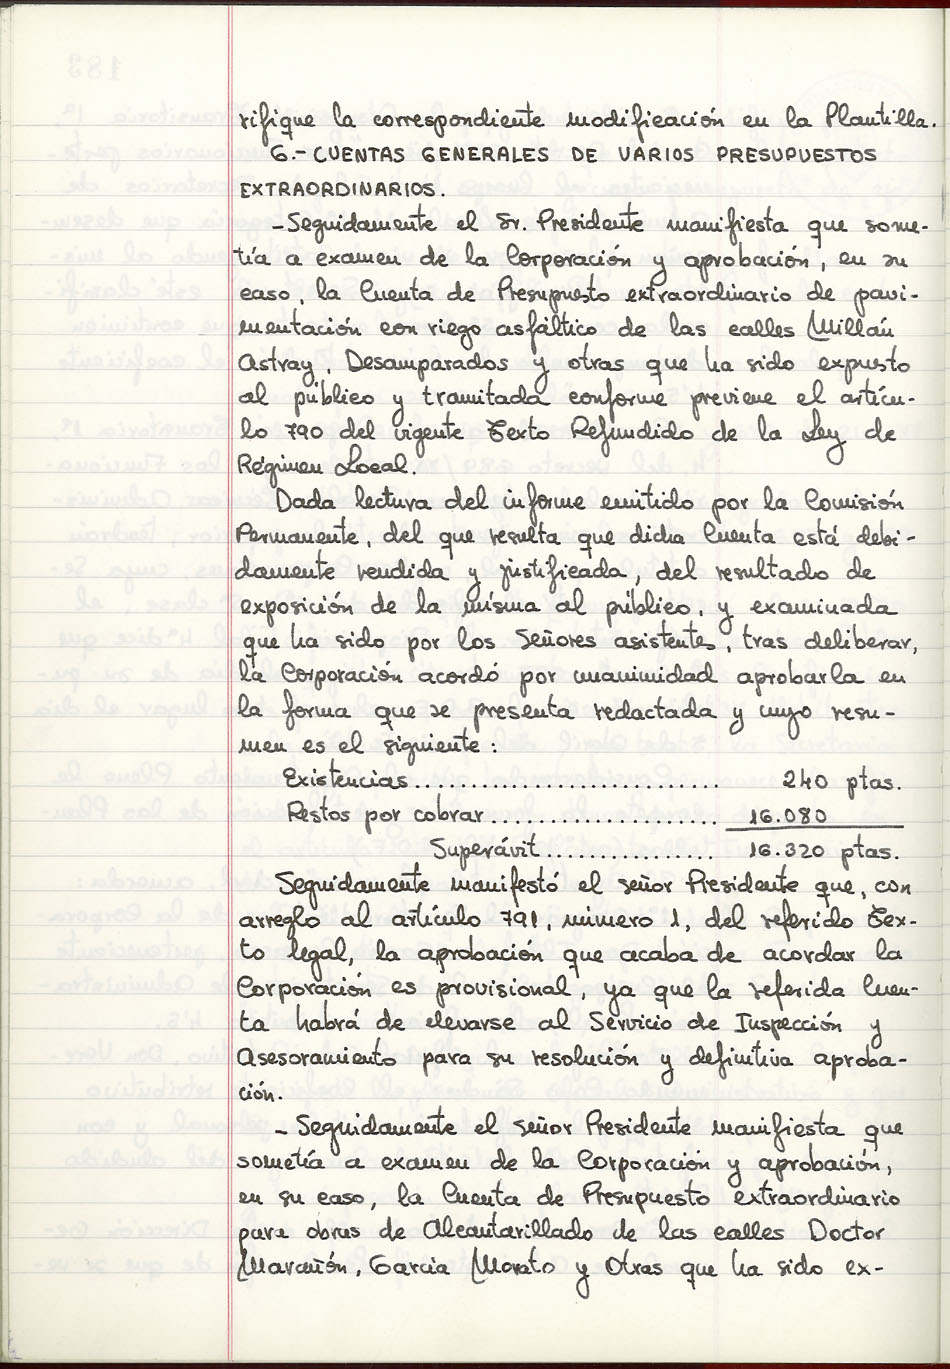 rifique la correspondiente modificación en la Plantilla.
6.- CUENTAS GENERALES DE VARIOS PRESUPUESTOS
EXTRAORDINARIOS.
-Seguidamente el Sr. Presidente manifiesta que some-
tía a examen de la Corporación y aprobación, en su
caso, la Cuenta de Presupuesto extraordinario de pavi-
mentación con riego asfáltico de las calles Millán
Astray, Desamparados y otras que ha sido expuesto
al público y tramitada conforme previene el artícu-
lo 790 del vigente Texto Refundido de la Ley de
Régimen Local.
Dada lectura del informe emitido por la Comisión
Permanente, del que resulta que dicha Cuenta está debi-
damente rendida y justificada, del resultado de
exposición de la misma al público, y examinada
que ha sido por los Señores asistentes, tras deliberar,
la Corporación acordó por unanimidad aprobarla en
la forma que se presenta redactada y cuyo resu-
men es el siguiente:
Existencias............................ 240 ptas.
Restos por cobrar..................... 16.080
Superávit............... 16.320 ptas.
Seguidamente manifestó el señor Presidente que, con
arreglo al artículo 791, número 1, del referido Tex-
to legal, la aprobación que acaba de acordar la
Corporación es provisional, ya que la referida Cuen-
ta habrá de elevarse al Servicio de Inspección y
Asesoramiento para su resolución y definitiva aproba-
ción.
- Seguidamente el señor Presidente manifiesta que
sometía a examen de la Corporación y aprobación,
en su caso, la Cuenta de Presupuesto extraordinario
para obras de Alcantarillado de las calles Doctor
Marañón, Garcia Morato y Otras que ha sido ex-